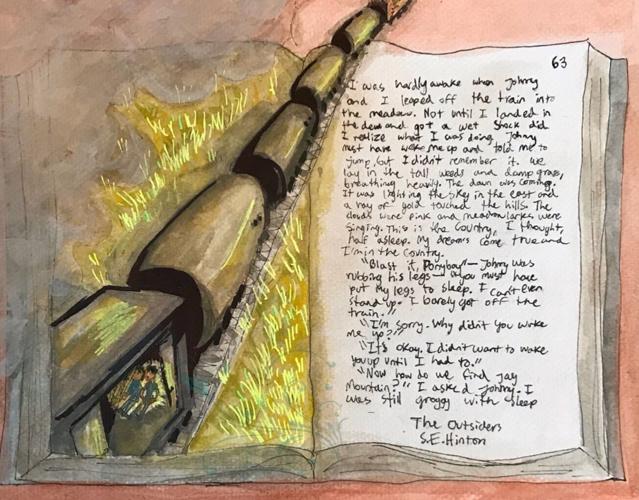 63
I was hardly awake when Johnny
and I leaped off the train into
the meadow. Not until I landed in
the dew and got a wet shock did
I realize what I was doing. Johnny
must have woke me up and told me to
jump, but I didn't remember it. We
lay in the tall weeds and damp grass,
breathing heavily. The dawn was coming.
It was lighting the sky in the east and
a ray of gold touched the hills. The
clouds were pink and meadowlarks were
singing. This is the country, I thought,
half asleep. My dreams come true and
I'm in the country.
"Blast it, Ponyboy"— Johnny was
rubbing his legs— "you must have
put my legs to sleep. I can't even
stand up. I barely got off the
train."
"I'm sorry. Why didn't you wake
me up?"
"It's okay. I didn't want to wake
you up until I had to."
"Now how do we find Jay
Mountain?" I asked Johnny. I
was still groggy with sleep
The Outsiders
S.E. Hinton